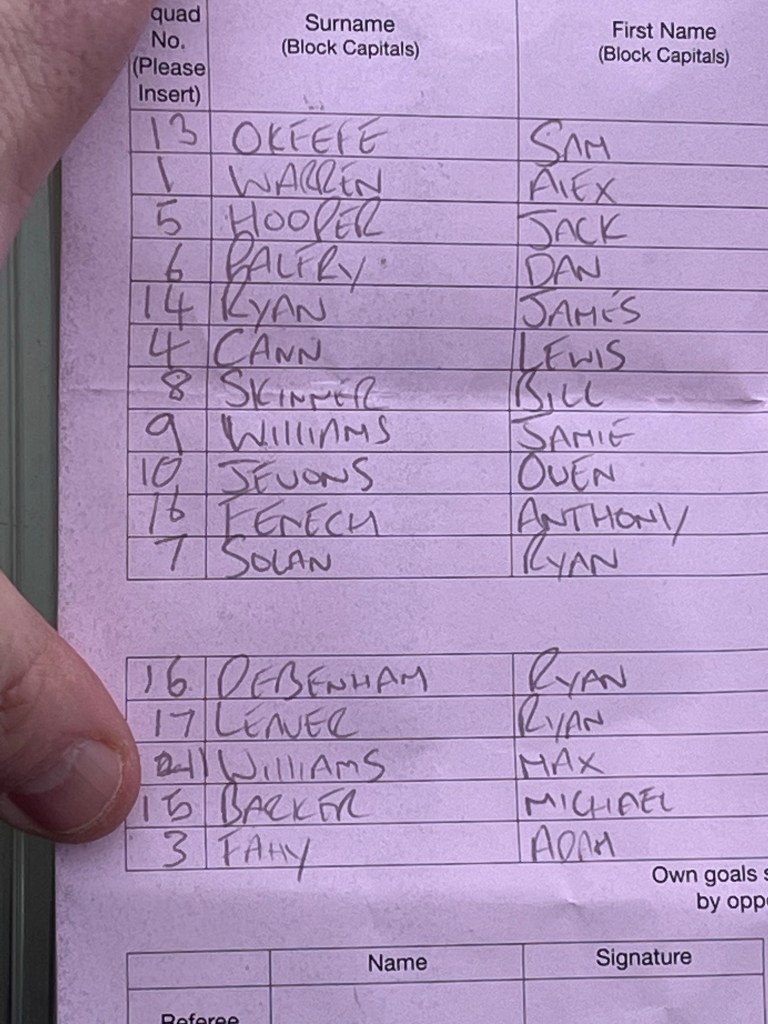 quad No. (Please Insert) Surname (Block Capitals) First Name (Block Capitals)
13 OKEEFE SAM
1 WARREN ALEX
5 HOOPER JACK
6 BALFRY DAN
14 RYAN JAMES
4 CANN LEWIS
8 SKINNER BILL
9 WILLIAMS JAMIE
10 JEVONS OWEN
16 FENECH ANTHONY
7 SOLAN RYAN
16 DEBENHAM RYAN
17 LEAVER RYAN
WILLIAMS MAX
15 BARKER MICHAEL
3 FAHY ADAM
Own goals s
by oppo
Name Signature
Referee